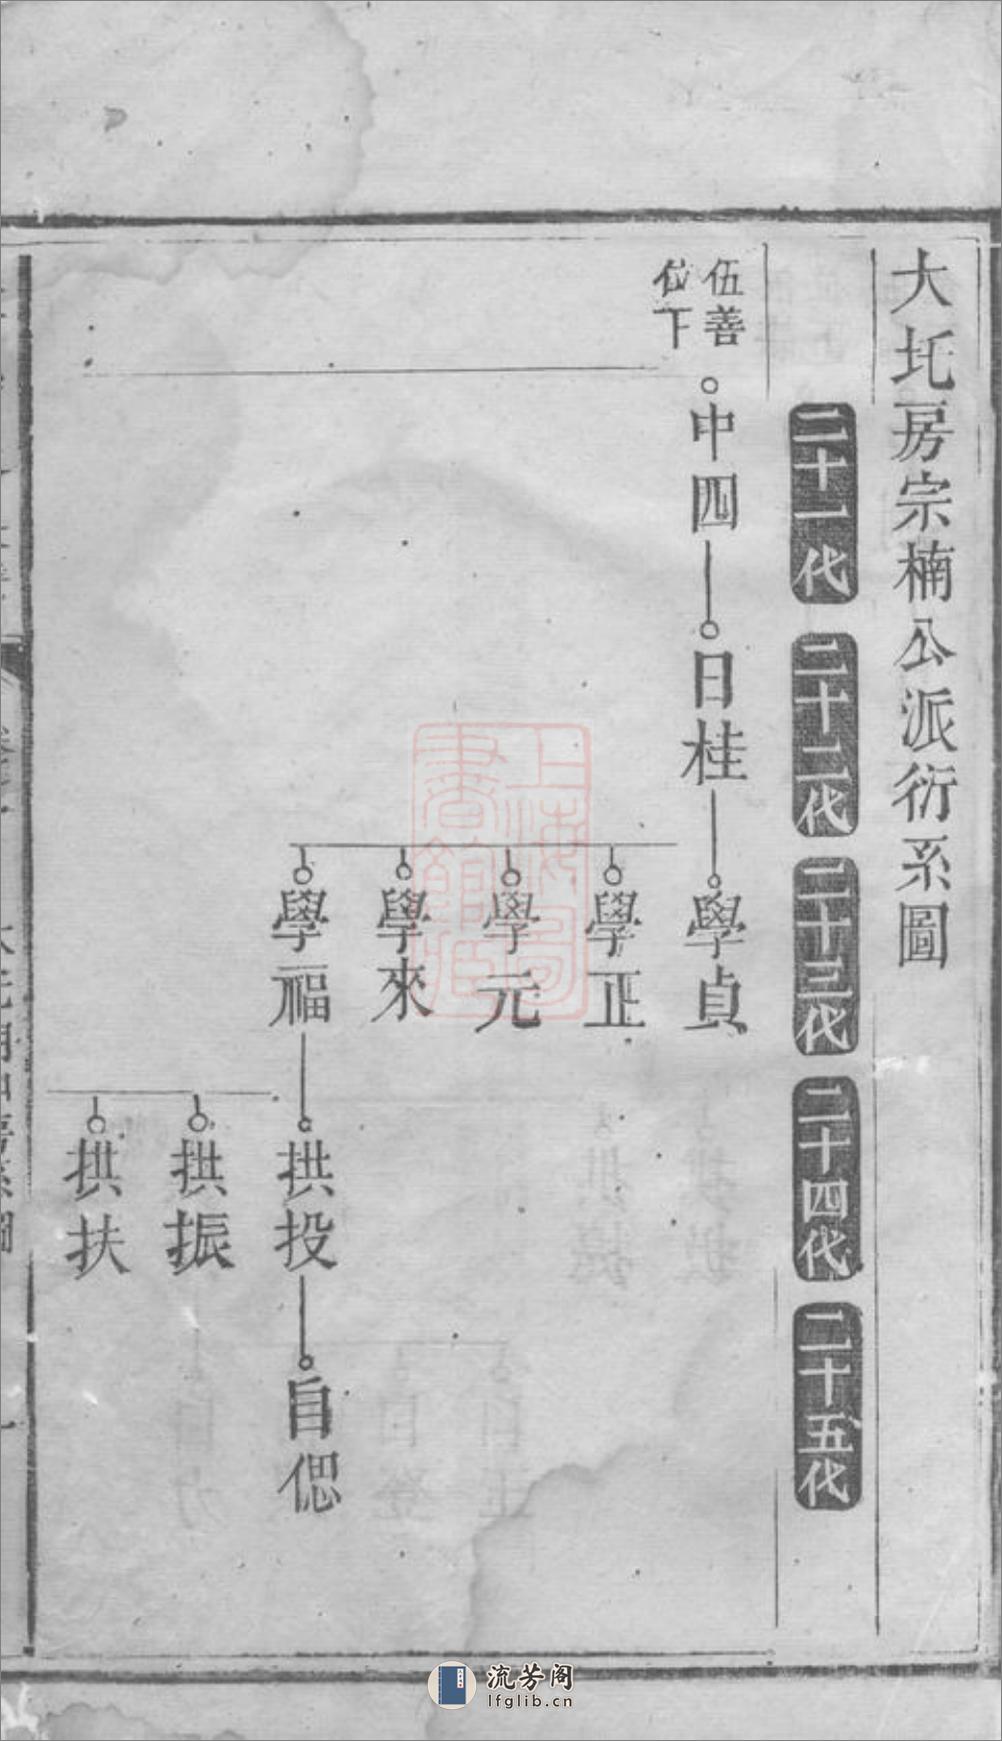 大圫房宗楠公派衍系圖
二十一代
二十二代
二十三代
二十四代
二十五代
伍善
位下
中四
日桂
學貞
學正
學元
學來
學福
拱投
拱振
拱扶
自偲
上海圖
書館藏
流芳阁
lfglib.cn